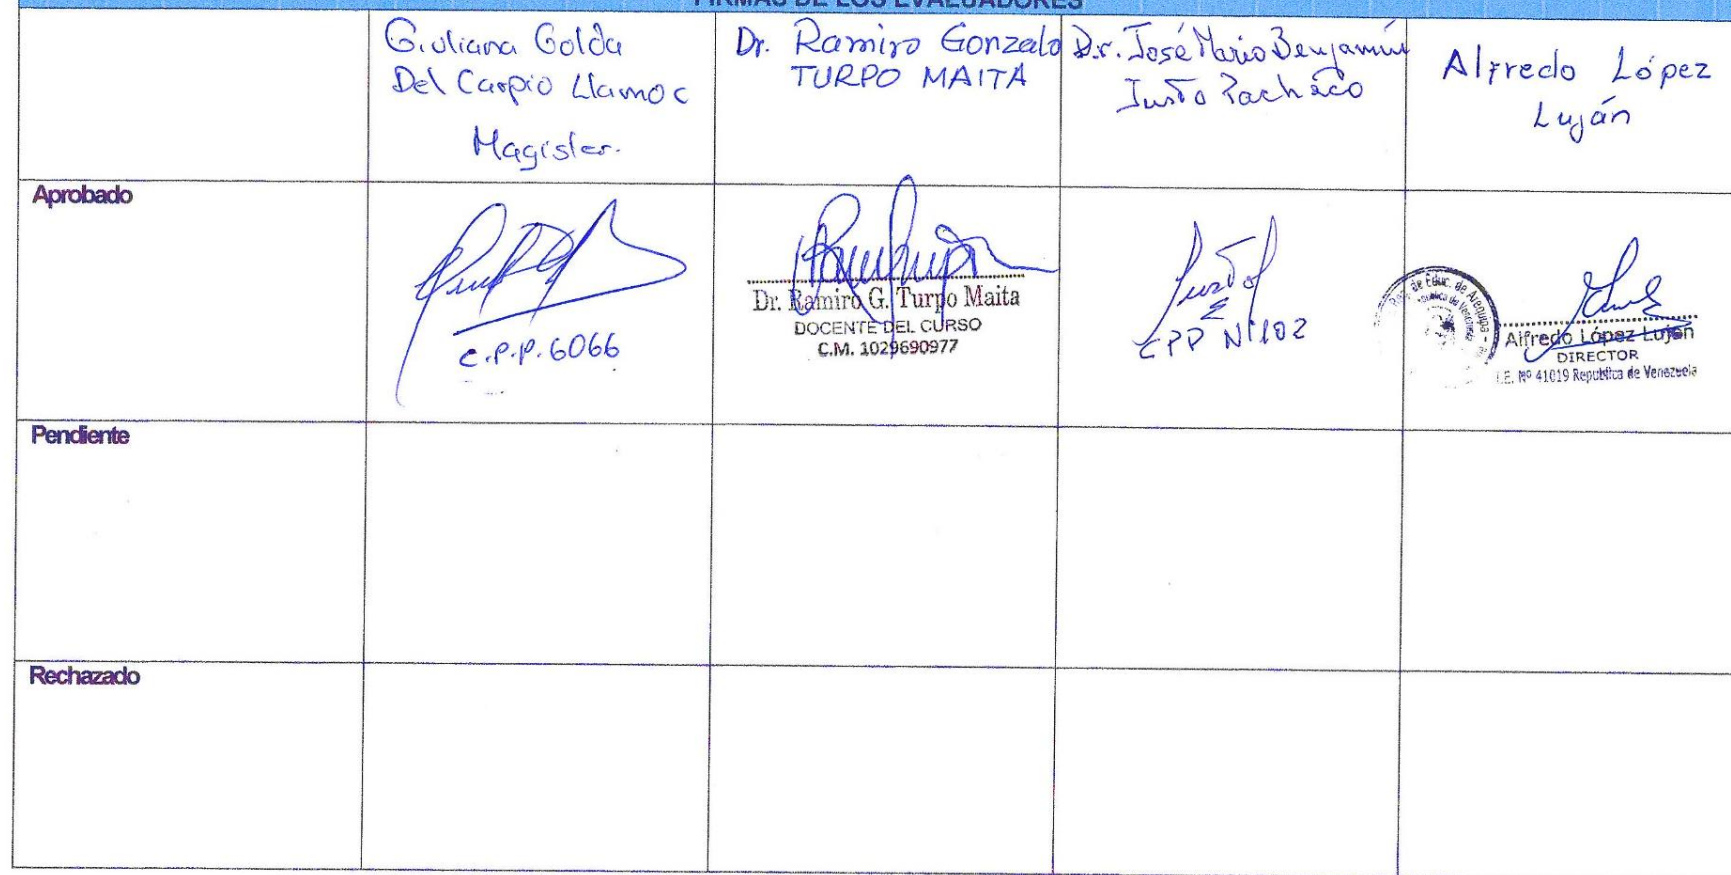 FIRMAS DE LOS EVALUADORES
Giuliana Golda
Del Carpio Llamoc
Magister.
Dr. Ramiro Gonzalo
TURPO MAITA
Dr. José Mario Benjamín
Justo Pacheco
Alfredo López
Luján
Aprobado
C.P.P. 6066
Dr. Ramiro G. Turpo Maita
DOCENTE DEL CURSO
C.M. 1029690977
CPP Nº102
de Educ. de Arequipa
Alfredo López Luján
DIRECTOR
I.E. Nº 41019 Republica de Venezuela
Pendiente
Rechazado